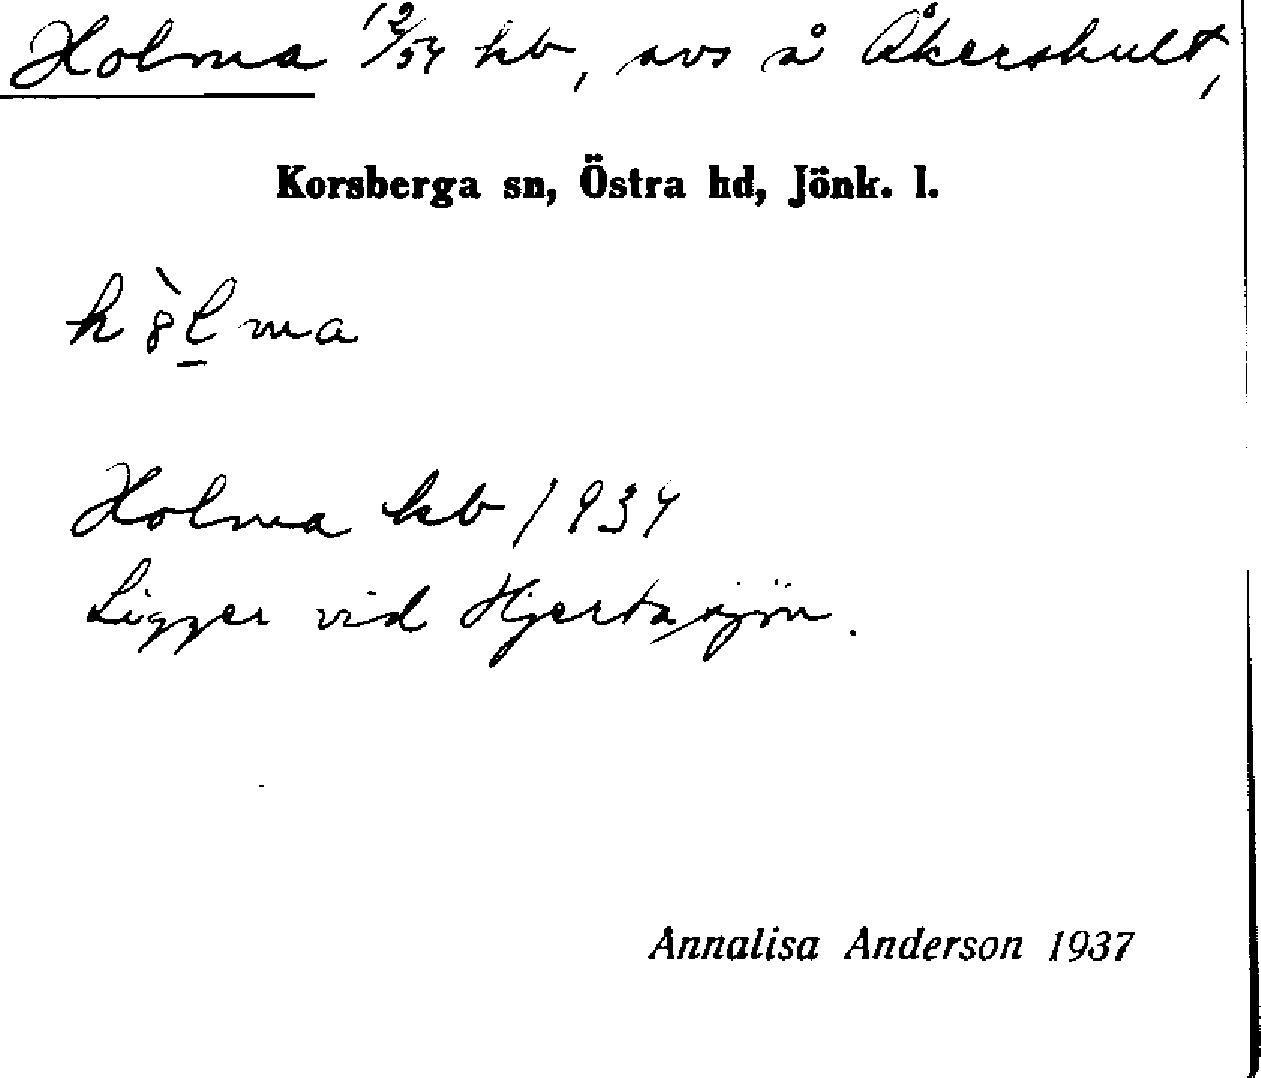 Holma 12/54 hb, avs å Åkershult,
Korsberga sn, Östra hd, Jönk. l.
h8̀l̲ma
Holma kb 1934
Ligger vid Hjertasjön.
Annalisa Anderson 1937